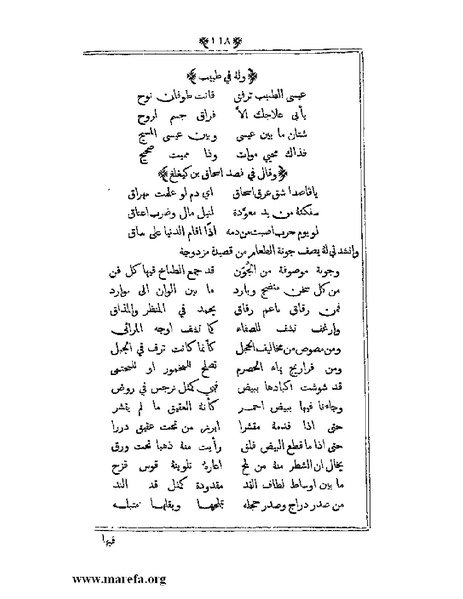 ﴿١١٨﴾
﴿وله في طبيب﴾
عيسى الطبيب ترفق فانت طوفان نوح
يأبى علاجك الا فراق جسم لروح
شتان ما بين عيسى وبين عيسى المسيح
فذاك محيي موات وذا مميت صحيح
﴿وقال في فصد اسحاق بن كيغلغ﴾
يا فاصدا شق عرق اسحاق اي دم لو علمت مهراق
سفكته من يد معودة لنيل مال وضرب اعناق
لو يوم حرب اصبت من دمه اذا اقام الدنيا على ساق
وانشد لي له يصف جونة الطعام من قصيدة مزدوجة
وجونة موصوفة من الجون قد جمع الطباخ فيها كل فن
من كل سخن منضج وبارد ما بين الوان الى موارد
فمن رقاق ناعم رقاق يحمد في المنظر والمذاق
وارغف تشف للصفاء كما تشف اوجه المرائي
ومن مصوص من مخاليف الحجل كأنما كانت ترف في الجبل
ومن فراريج بماء الحصرم تصلح للمخمور او للمحتمي
قد شوشت اكبادها ببيض فهي كمثل نرجس في روض
وجاءنا فيها ببيض احمر كأنه العقيق ما لم يقشر
حتى اذا قدمه مقشرا ابرز من تحت عقيق دررا
حتى اذا ما قطع البيض فلق رأيت منه ذهبا تحت ورق
يخال ان الشطر منه من لمح اعاره تلوينه قوس قزح
ما بين اوساط لطاف القد مقدودة كمثل قد الند
من صدر دراج وصدر حجله وبقلها متبله
فيها
www.marefa.org